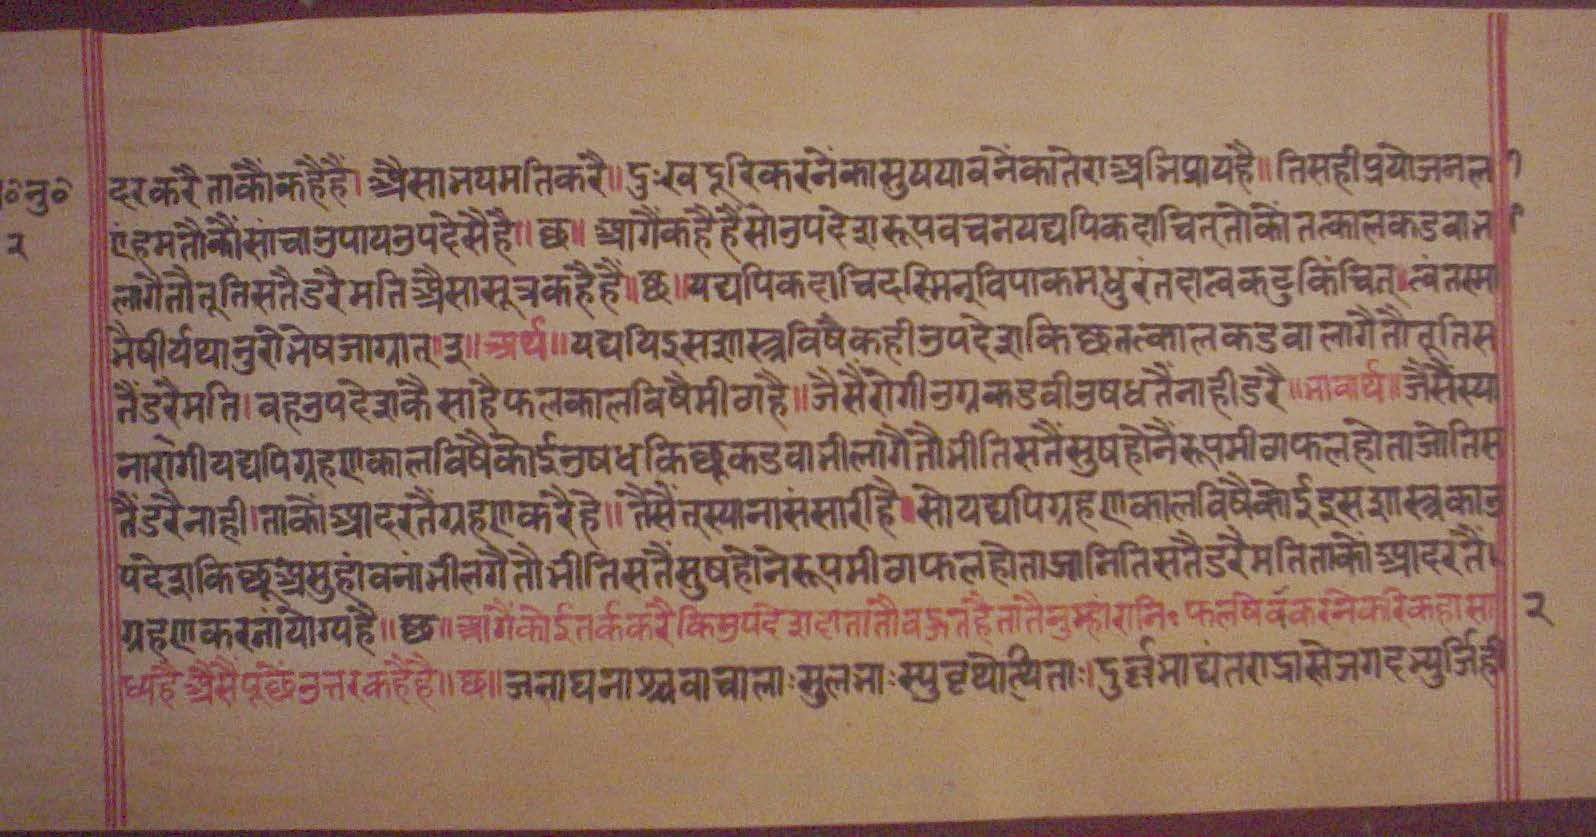 दर करै ताकौं कहै हैं। ऐसा भय मति करै॥ दुःख दूरि करनें का सुष यावनें का तेरा अभिप्राय है॥ तिसही प्रयोजन ल
एं हम तौकौं सांचा उपाय उपदेसै है॥ छ॥ आगैं कहै है सो उपदेश रूप वचन यद्यपि कदाचित् तोकौं तत्काल कडवा भ
लागै तौ तू तिसतै डरै मति ऐसा सूत्र कहै हैं॥ छ॥ यद्यपि कदाचिदस्मिन् विपाकमधुरं तदात्व कटु किंचित्॥ त्वं तस्मा
भैषीर्यथानुरो भेषजाग्रात् ३॥ अर्थ॥ यद्यपि इस शास्त्र विषै कही उपदेश किछु तत्काल कडवा लागै तौ तू तिस
तैं डरै मति। वह उपदेश कैसा है फलकाल विषै मीठा है॥ जैसैं रोगी उग्र कडवी उषध तैं नाही डरै॥ भावार्थ॥ जैसैं स्या
ना रोगी यद्यपि ग्रहण काल विषै कोई उषध किछू कडवा भी लागै तौ भी तिसतैं सुष होनैं रूप मीठा फल होता जो तिस
तैं डरै नाही। ताकौं आदर तैं ग्रहण करै है॥ तैसैं तू स्याना संसारी है॥ सो यद्यपि ग्रहण काल विषै कोई इस शास्त्र का उ
पदेश किछू असुहांवनां भी लगै तौ भी तिसतैं सुष होने रूप मीठा फल होता जानि तिसतै डरै मति ताकौं आदर तैं
ग्रहण करनां योग्य है॥ छ॥ आगैं कोई तर्क करै कि उपदेश दाता तौ वऊत है तातै तुम्हारा निःफल करने करि कहा सा
ध्य है ऐसैं पूछैं उत्तर कहै है॥ छ॥ जना घनाश्च वाचालाः सुलभाः स्युर्वृथोत्थिताः॥ दुर्लभा ह्यंतरार्द्रास्ते जगदभ्युर्जिही
२
२